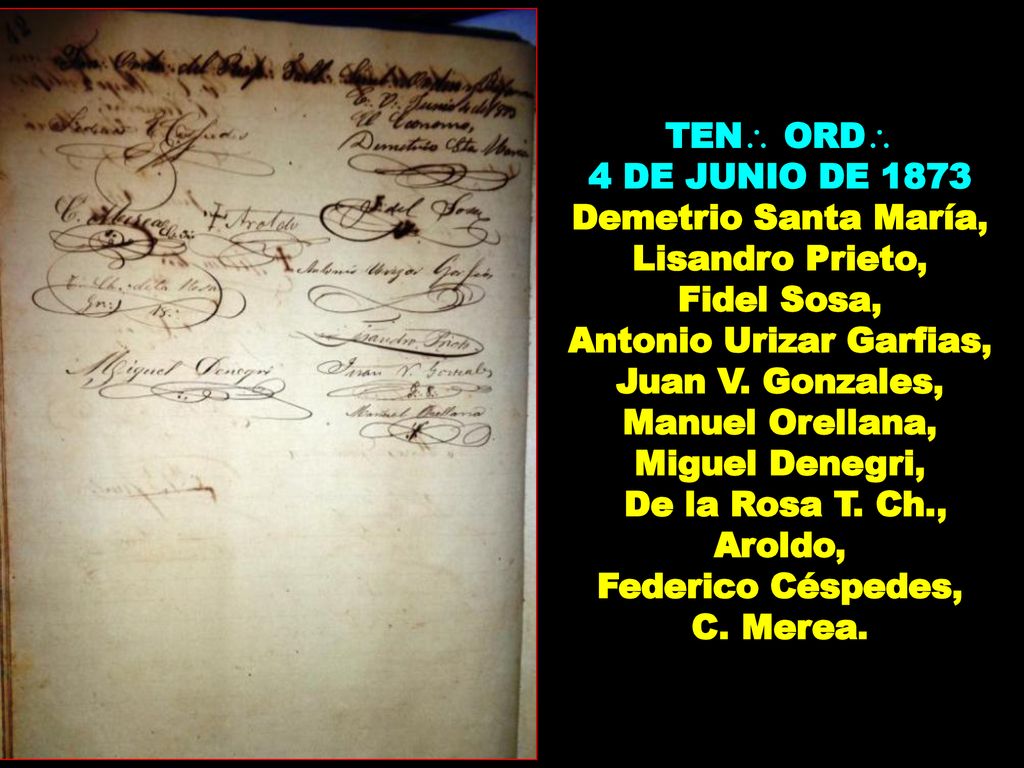 12
Ten. Orde. del Resp. Tall. Simb.
E. V. Junio 4 de 1873
El Economo,
Demetrio Sta Maria
F Aroldo
Fidel Sosa
Antonio Urizar Garfias
De la Rosa
Lisandro Prieto
Miguel Denegri
Juan V. Gonzales
Manuel Orellana
TEN∴ ORD∴
4 DE JUNIO DE 1873
Demetrio Santa María,
Lisandro Prieto,
Fidel Sosa,
Antonio Urizar Garfias,
Juan V. Gonzales,
Manuel Orellana,
Miguel Denegri,
De la Rosa T. Ch.,
Aroldo,
Federico Céspedes,
C. Merea.